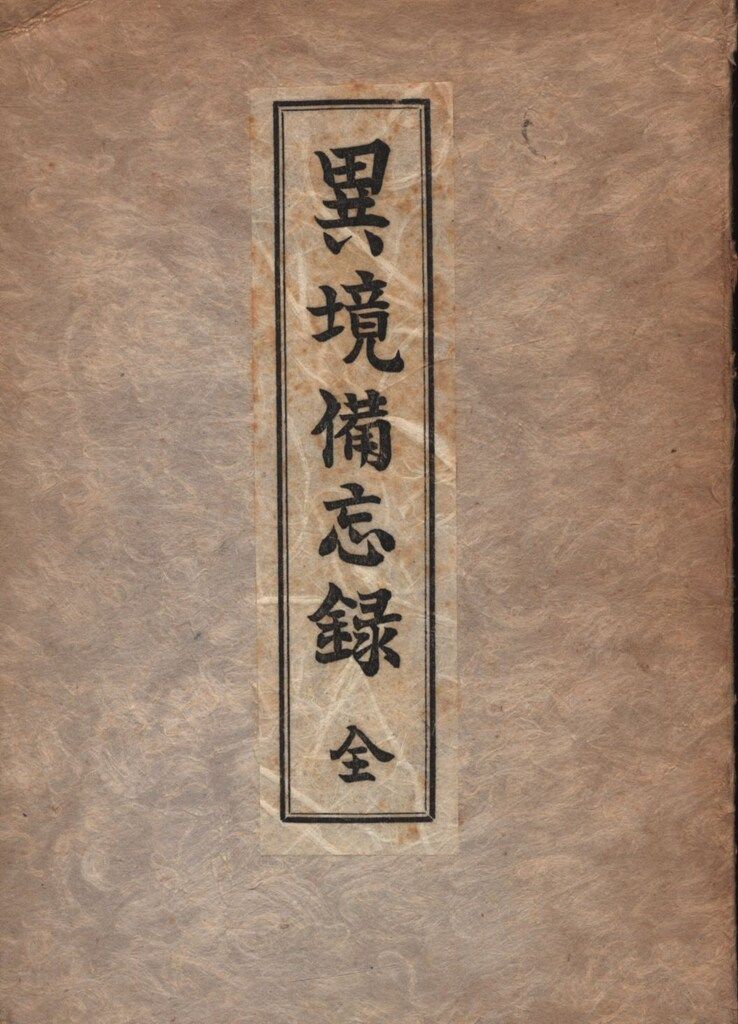 異境備忘録 全